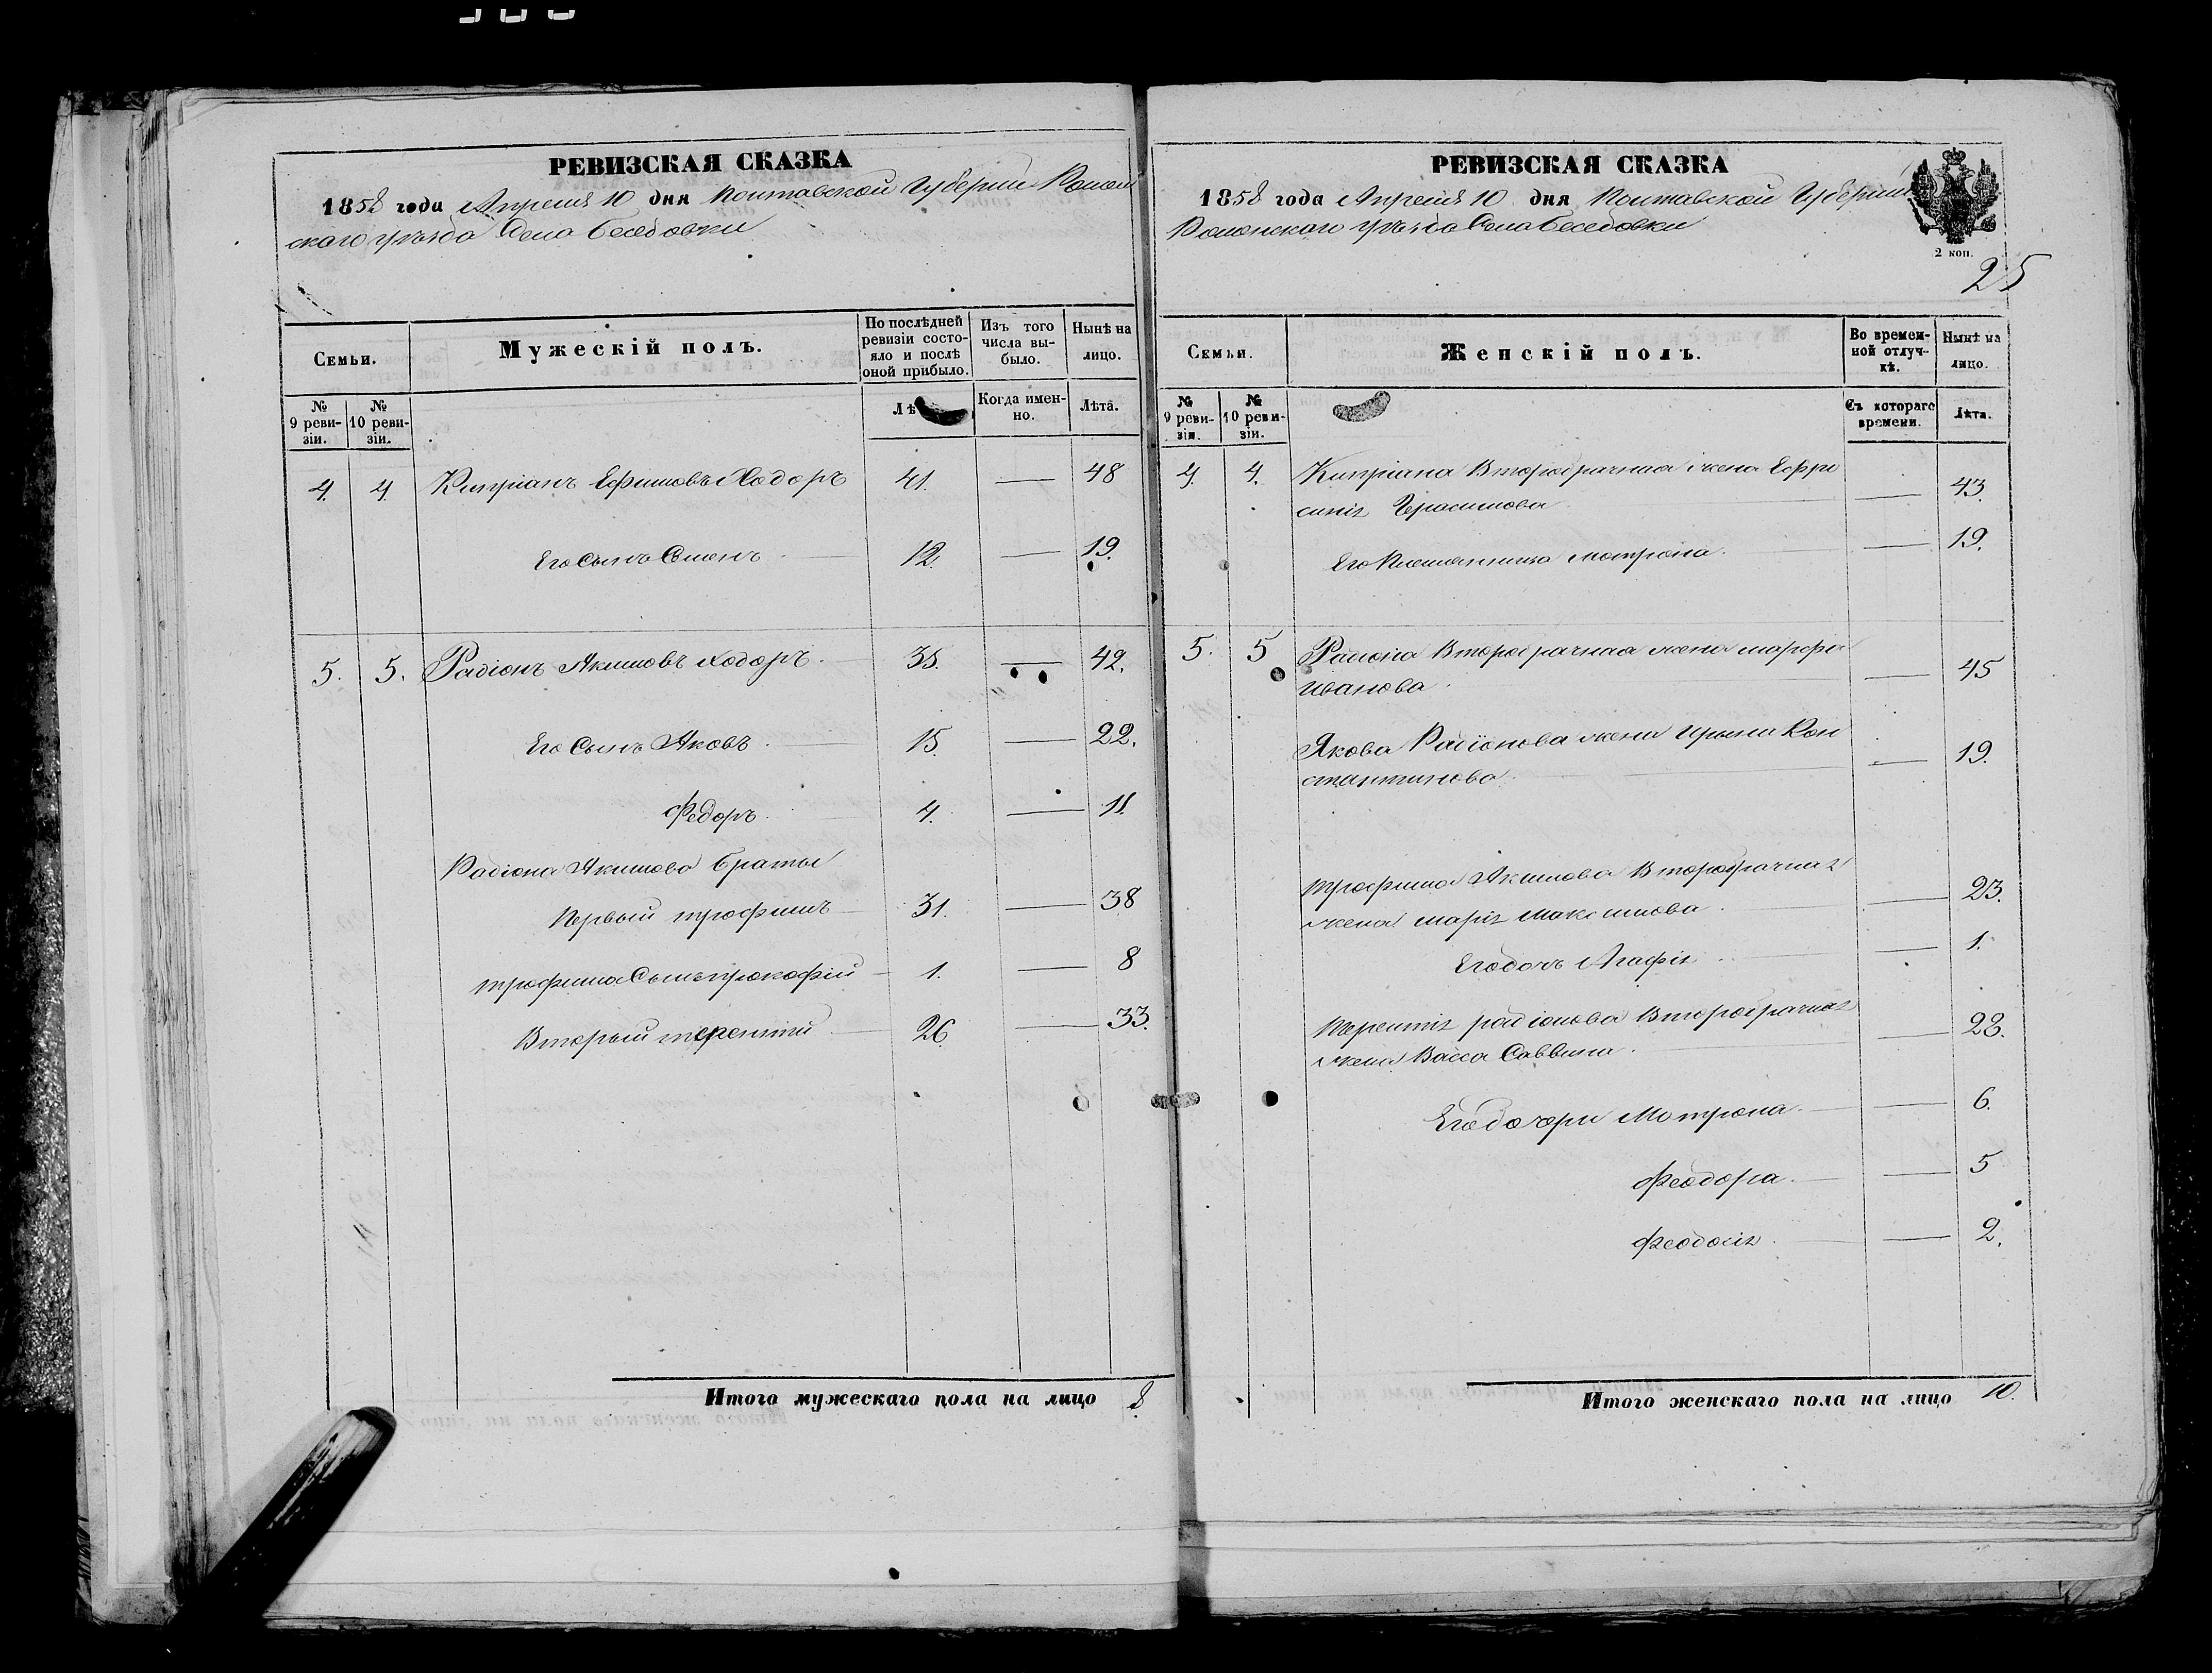 РЕВИЗСКАЯ СКАЗКА
1858 года Апреля 10 дня Полтавской Губернии Ромен
скаго уезда Села Беседовки
Семьи.
Мужескій полъ.
По послѣдней ревизіи состояло и послѣ оной прибыло.
Изъ того числа выбыло.
Нынѣ на лицо.
№ 9 ревизіи.
№ 10 ревизіи.
Лѣ
Когда именно.
Лѣта.
4. 4. Кипріанъ Ефимовъ Ходоръ 41. — 48
Его Сынъ Семенъ 12. — 19.
5. 5. Радіонъ Акимовъ Ходоръ 35. — 42.
Его Сынъ Яковъ 15. — 22.
Федоръ 4. — 11.
Радіона Акимова братья
Первый трофимъ 31. — 38
трофима Сынъ прокофій 1. — 8
Вторый терентій 26. — 33.
Итого мужескаго пола на лицо 8.
РЕВИЗСКАЯ СКАЗКА
1858 года Апреля 10 дня Полтавской Губерніи
Роменскаго уезда Села Беседовки
2 коп.
25
Семьи.
Женскій полъ.
Во временной отлучкѣ.
Нынѣ на лицо.
№ 9 ревизіи.
№ 10 ревизіи.
Съ котораго времени.
Лѣта.
4. 4. Кипріана Второбрачная жена Ефро
синія Герасимова — 43.
Его Племянница Мотрона — 19.
5. 5 Радіона Второбрачная жена марфа
Иванова — 45
Якова Радіонова жена Ирина Кон
стантинова — 19.
трофима Акимова Второбрачная
жена марія Максимова — 23.
Его дочь Агафія — 1.
Терентія радіонова Второбрачная
жена Васса Саввина — 28.
Его дочери Мотрона — 6.
Феодора — 5
Феодосія — 2.
Итого женскаго пола на лицо 10.